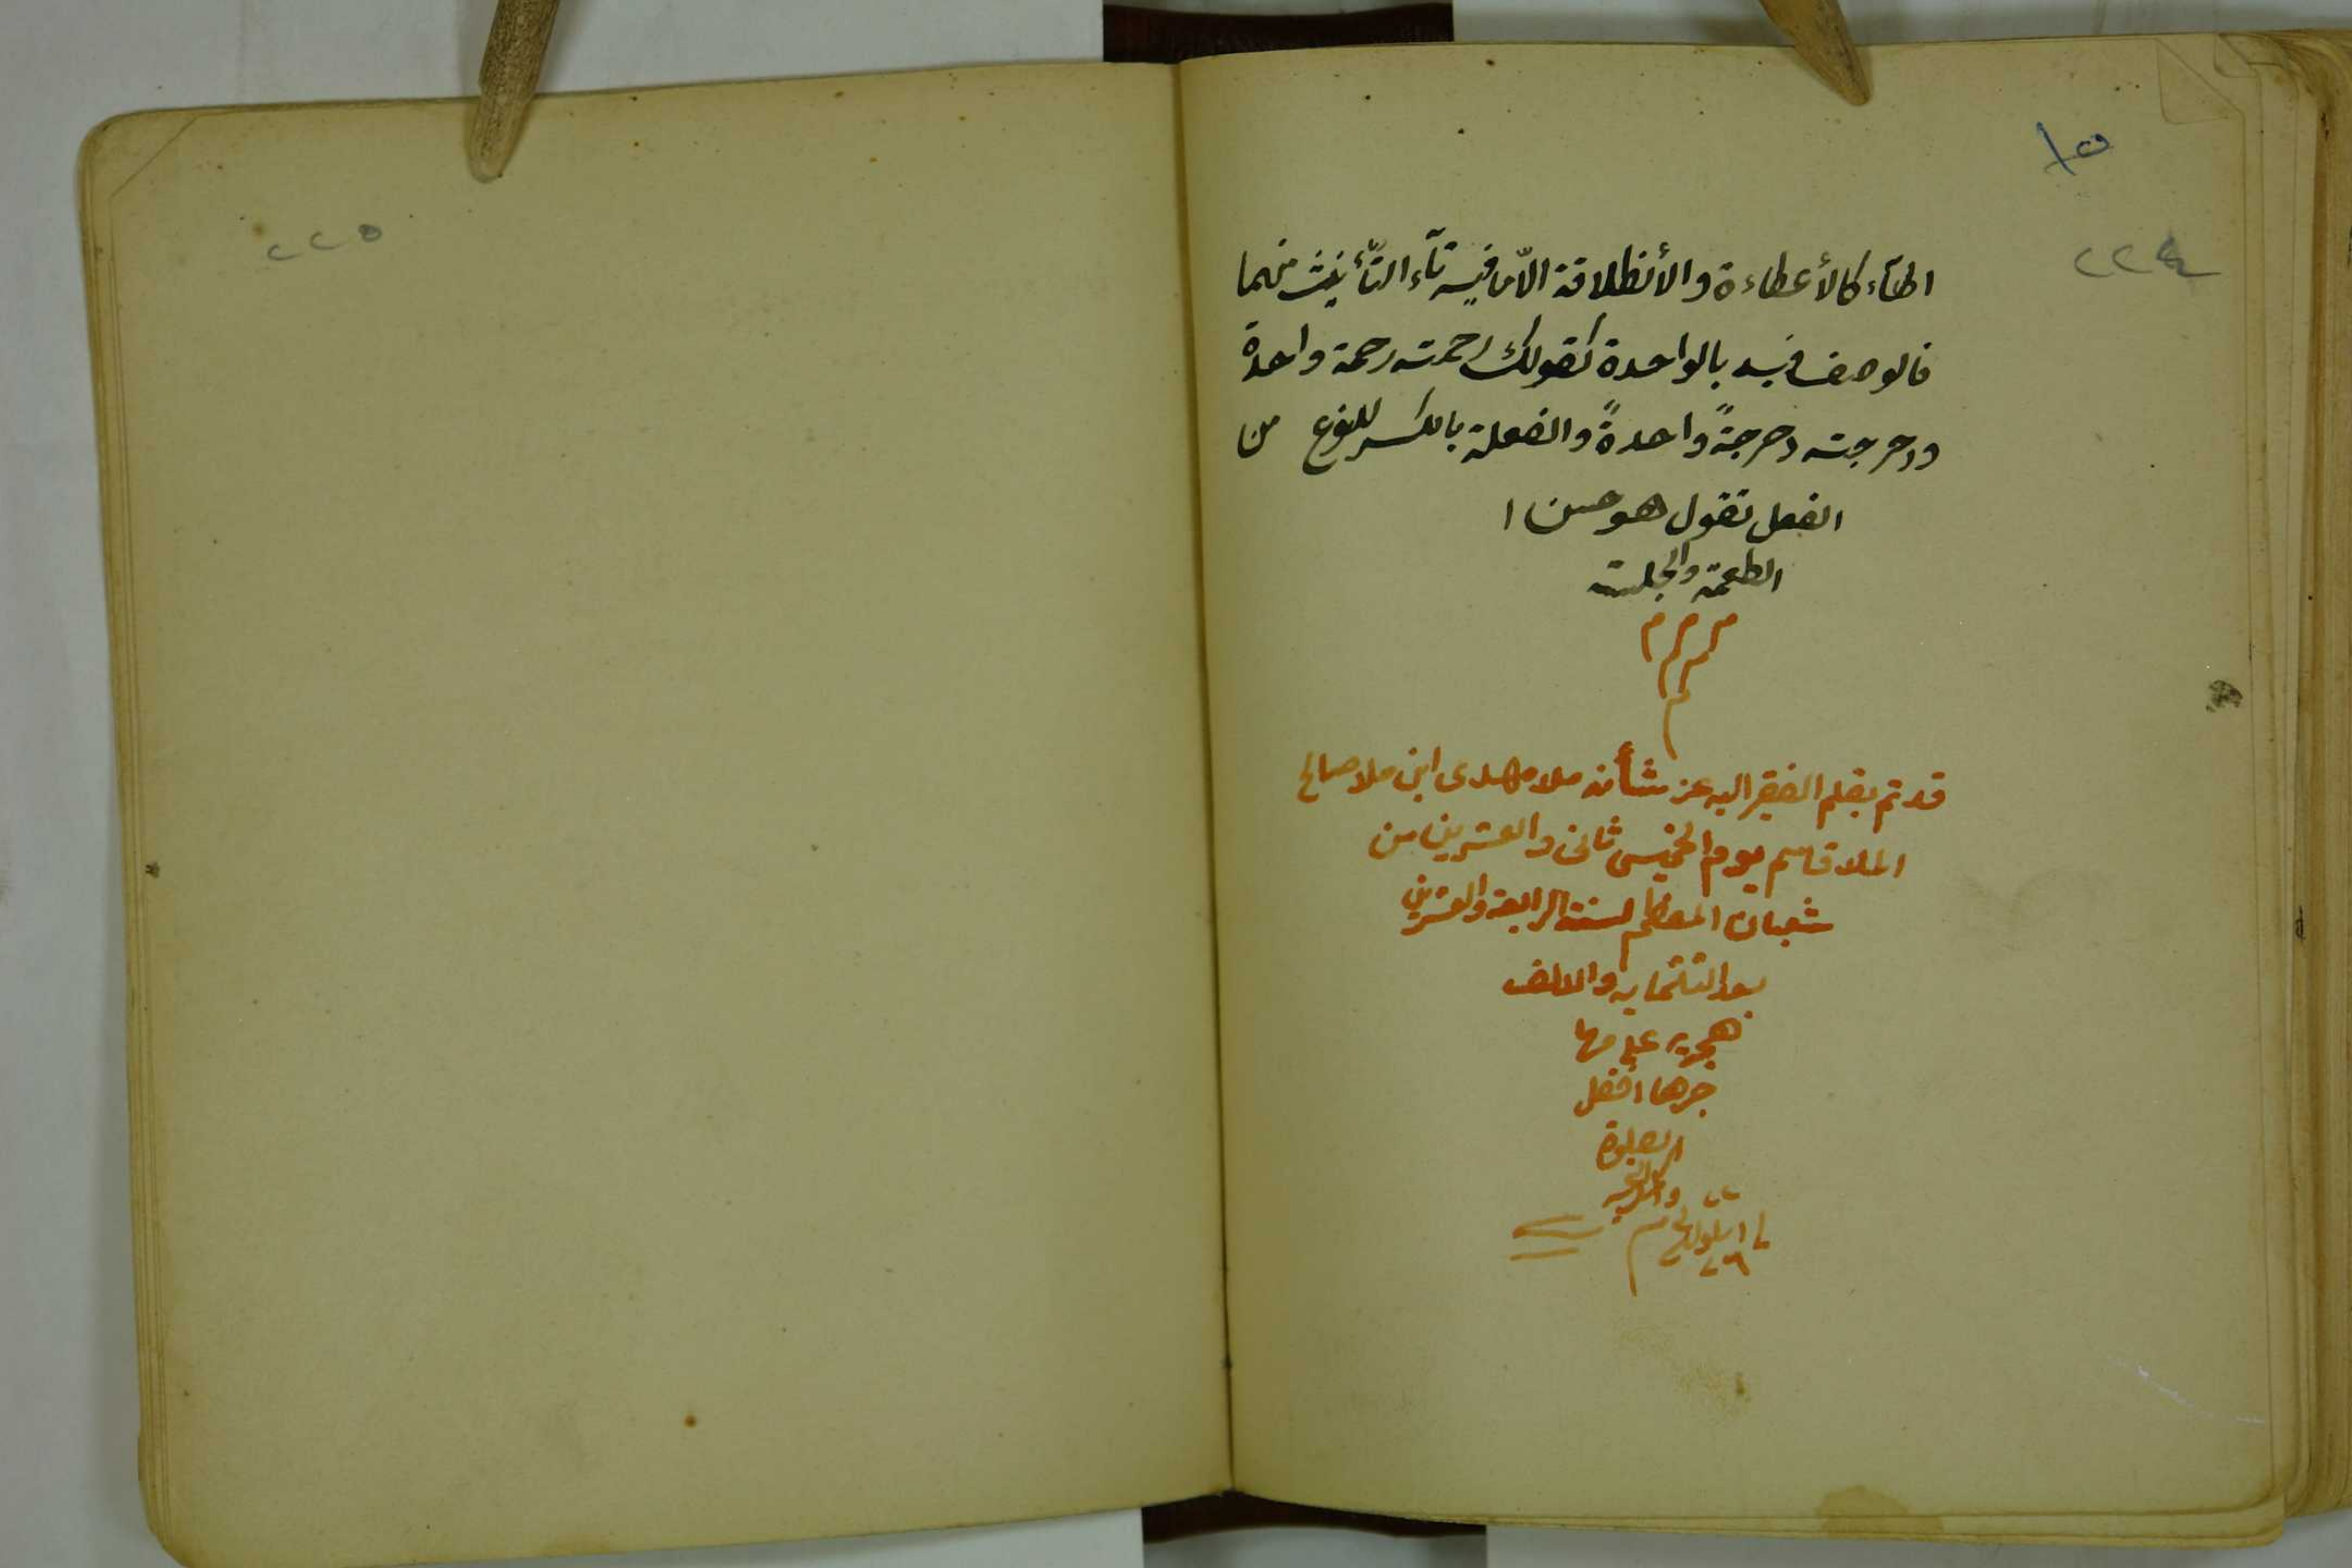 ٢٢٤
الهآء كالأعطاءة والأنطلاقة الاّ ما فيه تآء التّأنيث منهما
فالوصف فيه بالواحدة كقولك رحمته رحمة واحدة
ودحرجته دحرجةً واحدةً والفعلة بالكسر للنوع من
الفعل تقول هو حسن ا
الطعمة والجلسة
م م م
م م
م
قد تم بقلم الفقير اليه عز شأنه ملا مهدى ابن ملا صالح
الملا قاسم يوم الخميس ثانى والعشرين من
شعبان المعظم لسنة الرابعة والعشرين
بعد الثلثمايه والالف
هجريه على مها
جرها افضل
الصلوة
و
٢٢٥